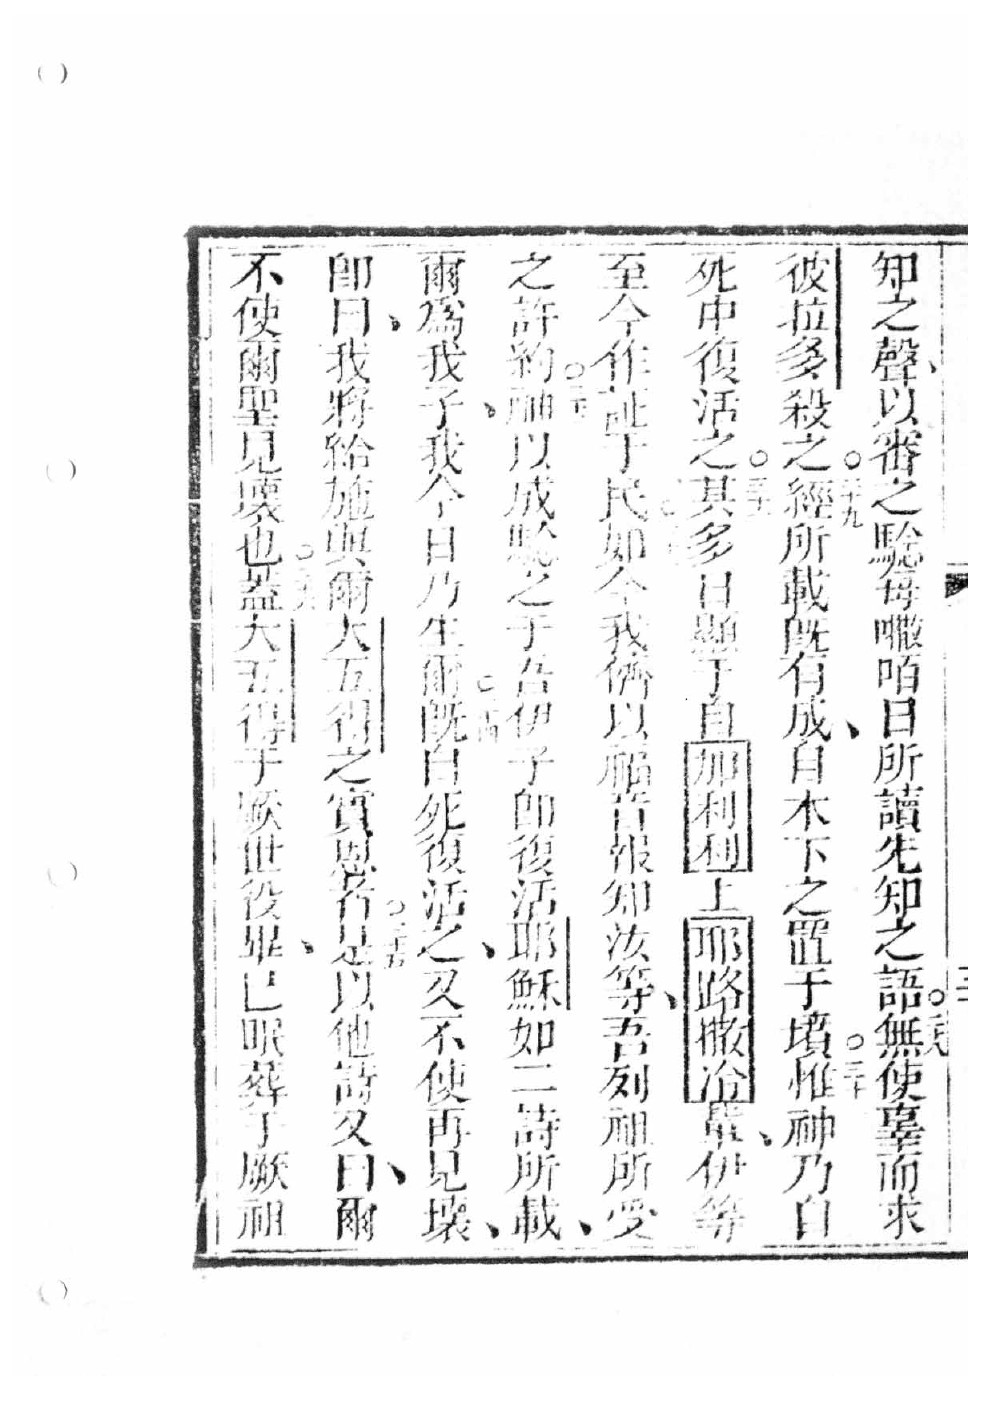 知之聲、以審之騐每嘋咟日所讀先知之語○二八無使辜而求
彼拉多殺之○二十九經所載既有成、自木下之置于墳○三十惟神乃自
死中復活之○三十一其多日顯于自加利利上耶路撒冷輩、伊等
至今作証于民如今我儕以福音報知汝等、吾列祖所受
之許約○三十三神以成騐之于吾伊子即復活耶穌如二詩所載、
爾為我子、我今日乃生爾○三十四既自死復活之、又不使再見壞、
即曰、我將給施與爾大五得之實恩者○三十五是以他詩又曰、爾
不使爾聖見壞也○三十六蓋大五得于厥世役畢、已眠葬于厥祖